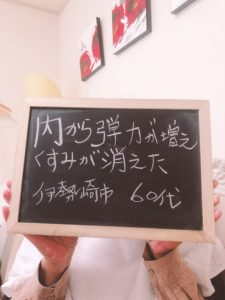 内から弾力が増え
くすみが消えた
伊勢崎市 60代